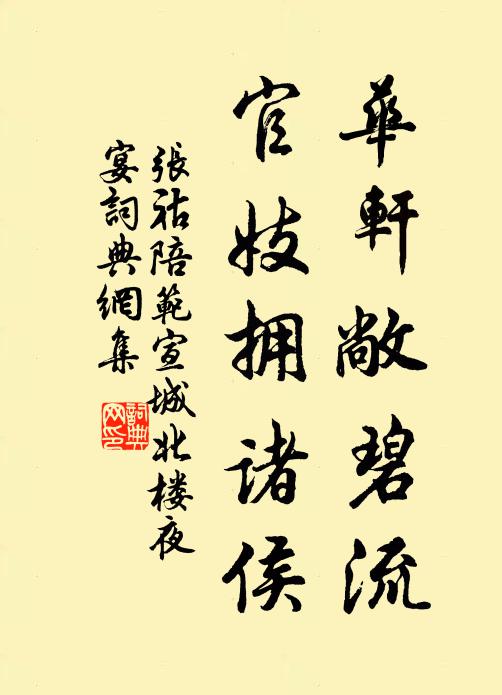 華軒敞碧流
官妓拥诸侯
張祜陪範宣城北楼夜
宴詞典網集
詞典网印